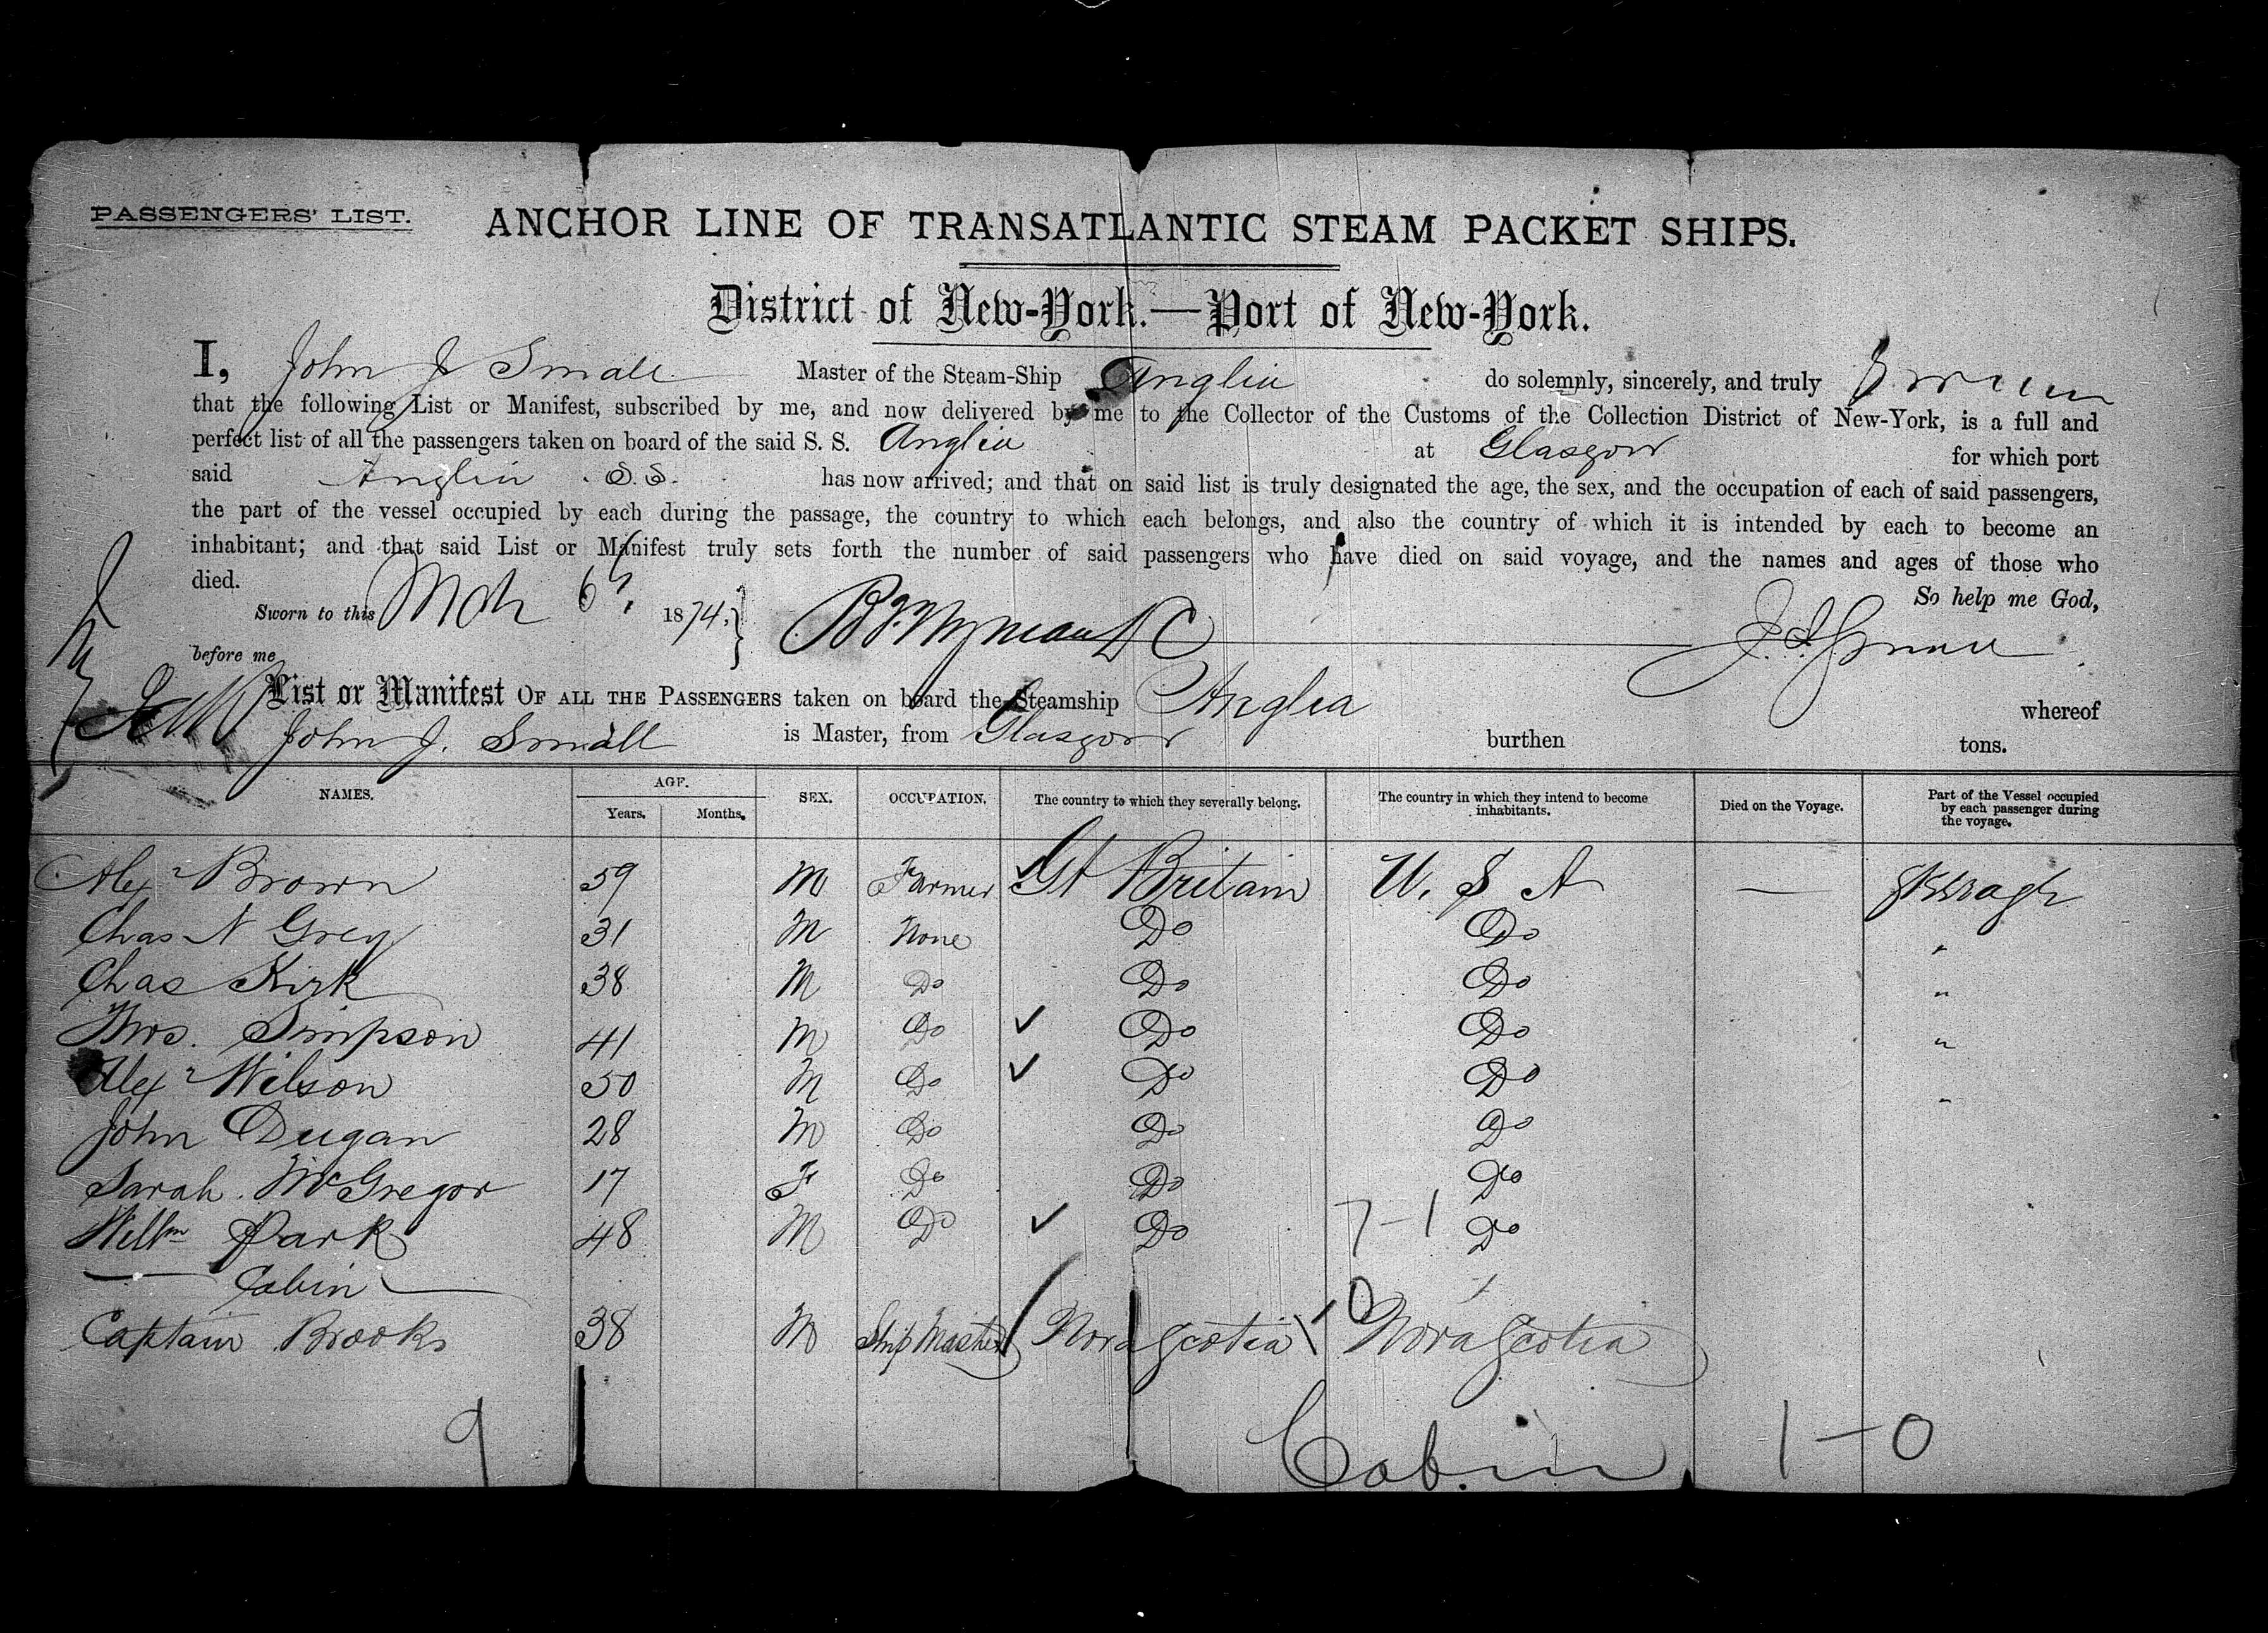 PASSENGERS' LIST.
ANCHOR LINE OF TRANSATLANTIC STEAM PACKET SHIPS.
District of New-York.—Port of New-York.
I, John J Small Master of the Steam-Ship Anglia do solemnly, sincerely, and truly
that the following List or Manifest, subscribed by me, and now delivered by me to the Collector of the Customs of the Collection District of New-York, is a full and
perfect list of all the passengers taken on board of the said S. S. Anglia at Glasgow for which port
said Anglia S.S. has now arrived; and that on said list is truly designated the age, the sex, and the occupation of each of said passengers,
the part of the vessel occupied by each during the passage, the country to which each belongs, and also the country of which it is intended by each to become an
inhabitant; and that said List or Manifest truly sets forth the number of said passengers who have died on said voyage, and the names and ages of those who
died. So help me God,
Sworn to this Mch 6th, 1874. J. J. Small
before me
List or Manifest OF ALL THE PASSENGERS taken on board the Steamship Anglia whereof
John J. Small is Master, from Glasgow burthen tons.
NAMES. AGE. Years. Months. SEX. OCCUPATION. The country to which they severally belong. The country in which they intend to become inhabitants. Died on the Voyage. Part of the Vessel occupied by each passenger during the voyage.
Alexr Brown 59 M Farmer Gt Britain U. S A —
Chas N Grey 31 M None Do Do "
Chas Kirk 38 M Do Do Do "
Thos. Simpson 41 M Do Do Do "
Alexr Wilson 50 M Do Do Do "
John Dugan 28 M Do Do Do
Sarah McGregor 17 F Do Do Do
Willm Park 48 M Do Do 7-1 Do
Cabin 10
Captain Brooks 38 M Ship Master Nova Scotia Nova Scotia
9 Cabin 1-0